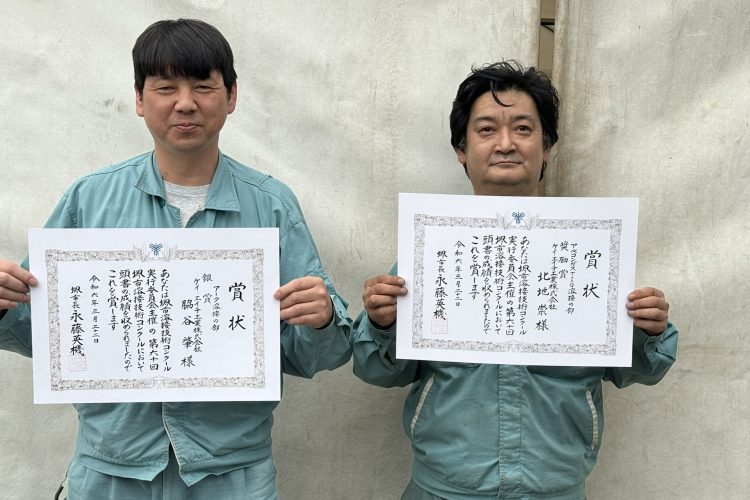 賞状
アーク溶接の部
銀賞
ケイ・エイチ工業株式会社
脇谷 肇 様
あなたは堺市溶接技術コンクール
実行委員会主催の第六十回
堺市溶接技術コンクールにおいて
頭書の成績を収められましたので
これを賞します
令和六年三月二十三日
堺市長 永藤英機
賞状
奨励賞
ケイ・エイチ工業株式会社
北地 崇 様
あなたは堺市溶接技術コンクール
実行委員会主催の第六十回
堺市溶接技術コンクールにおいて
頭書の成績を収められましたので
これを賞します
令和六年三月二十三日
堺市長 永藤英機